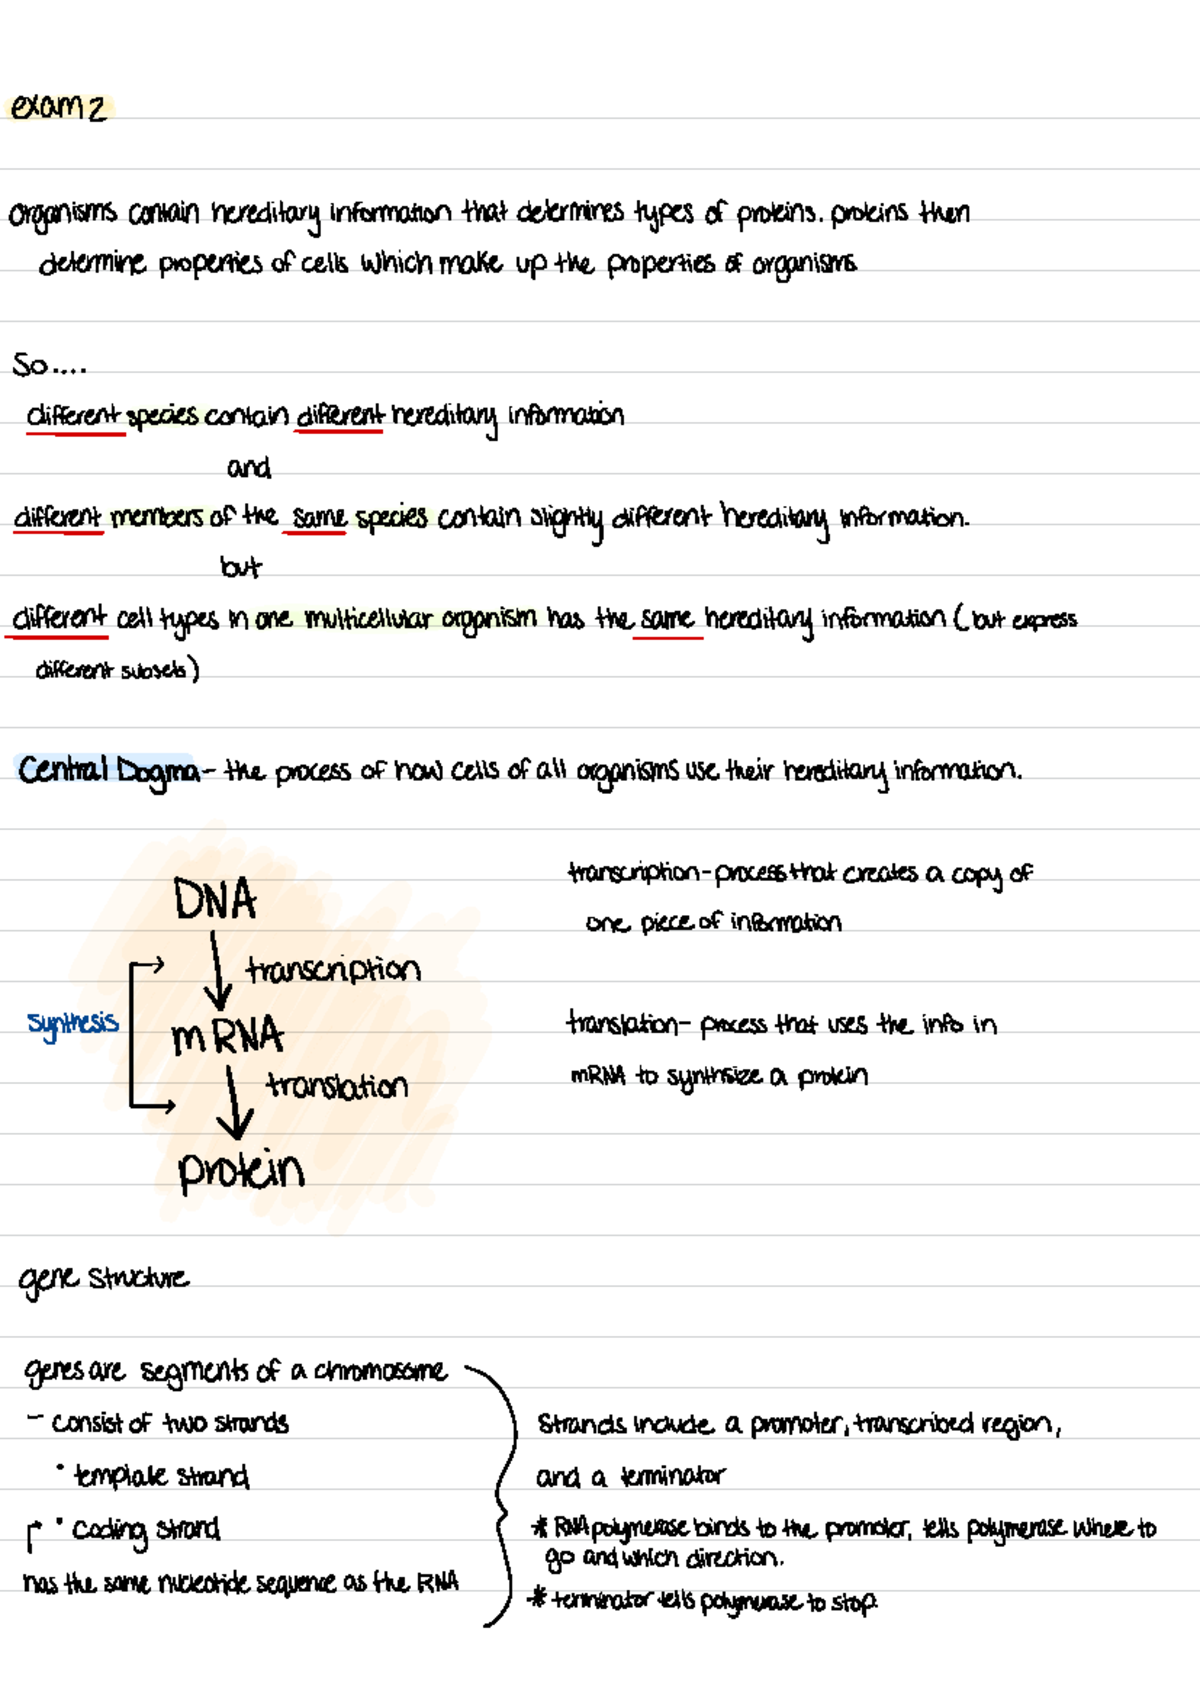 exam 2
organisms contain hereditary information that determines types of proteins. proteins then
determine properties of cells which make up the properties of organisms
So....
different species contain different hereditary information
and
different members of the same species contain slightly different hereditary information.
but
different cell types in one multicellular organism has the same hereditary information (but express
different subsets)
Central Dogma - the process of how cells of all organisms use their hereditary information.
DNA
transcription
synthesis
mRNA
translation
protein
transcription - process that creates a copy of
one piece of information
translation - process that uses the info in
mRNA to synthsize a protein
gene structure
genes are segments of a chromosome
- consist of two strands
• template strand
• coding strand
has the same nucleotide sequence as the RNA
Strands include a promoter, transcribed region,
and a terminator
* RNA polymerase binds to the promoter, tells polymerase where to
go and which direction.
* terminator tells polymerase to stop.